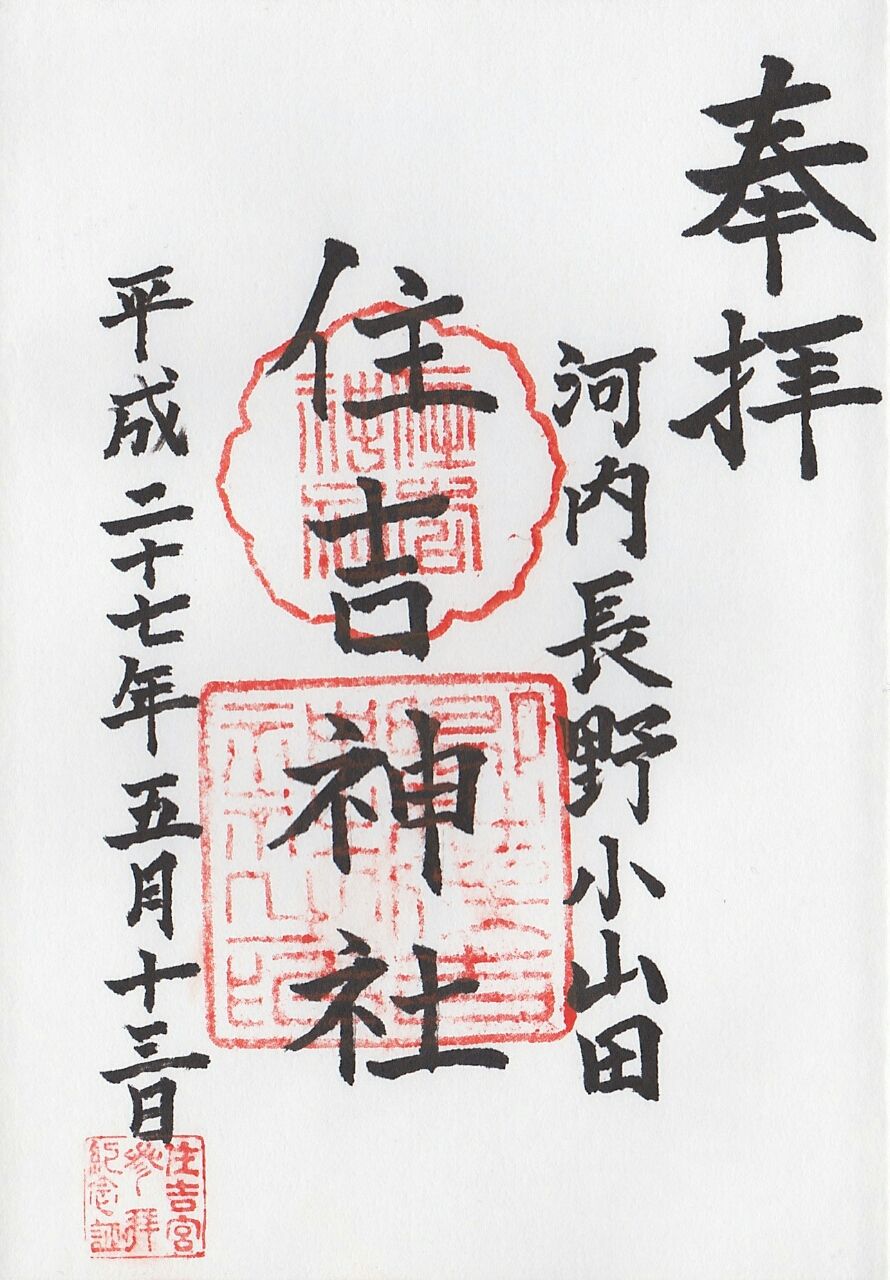 奉拝
河内長野小山田
住吉神社
平成二十七年五月十三日
住吉宮
参拝
紀念証